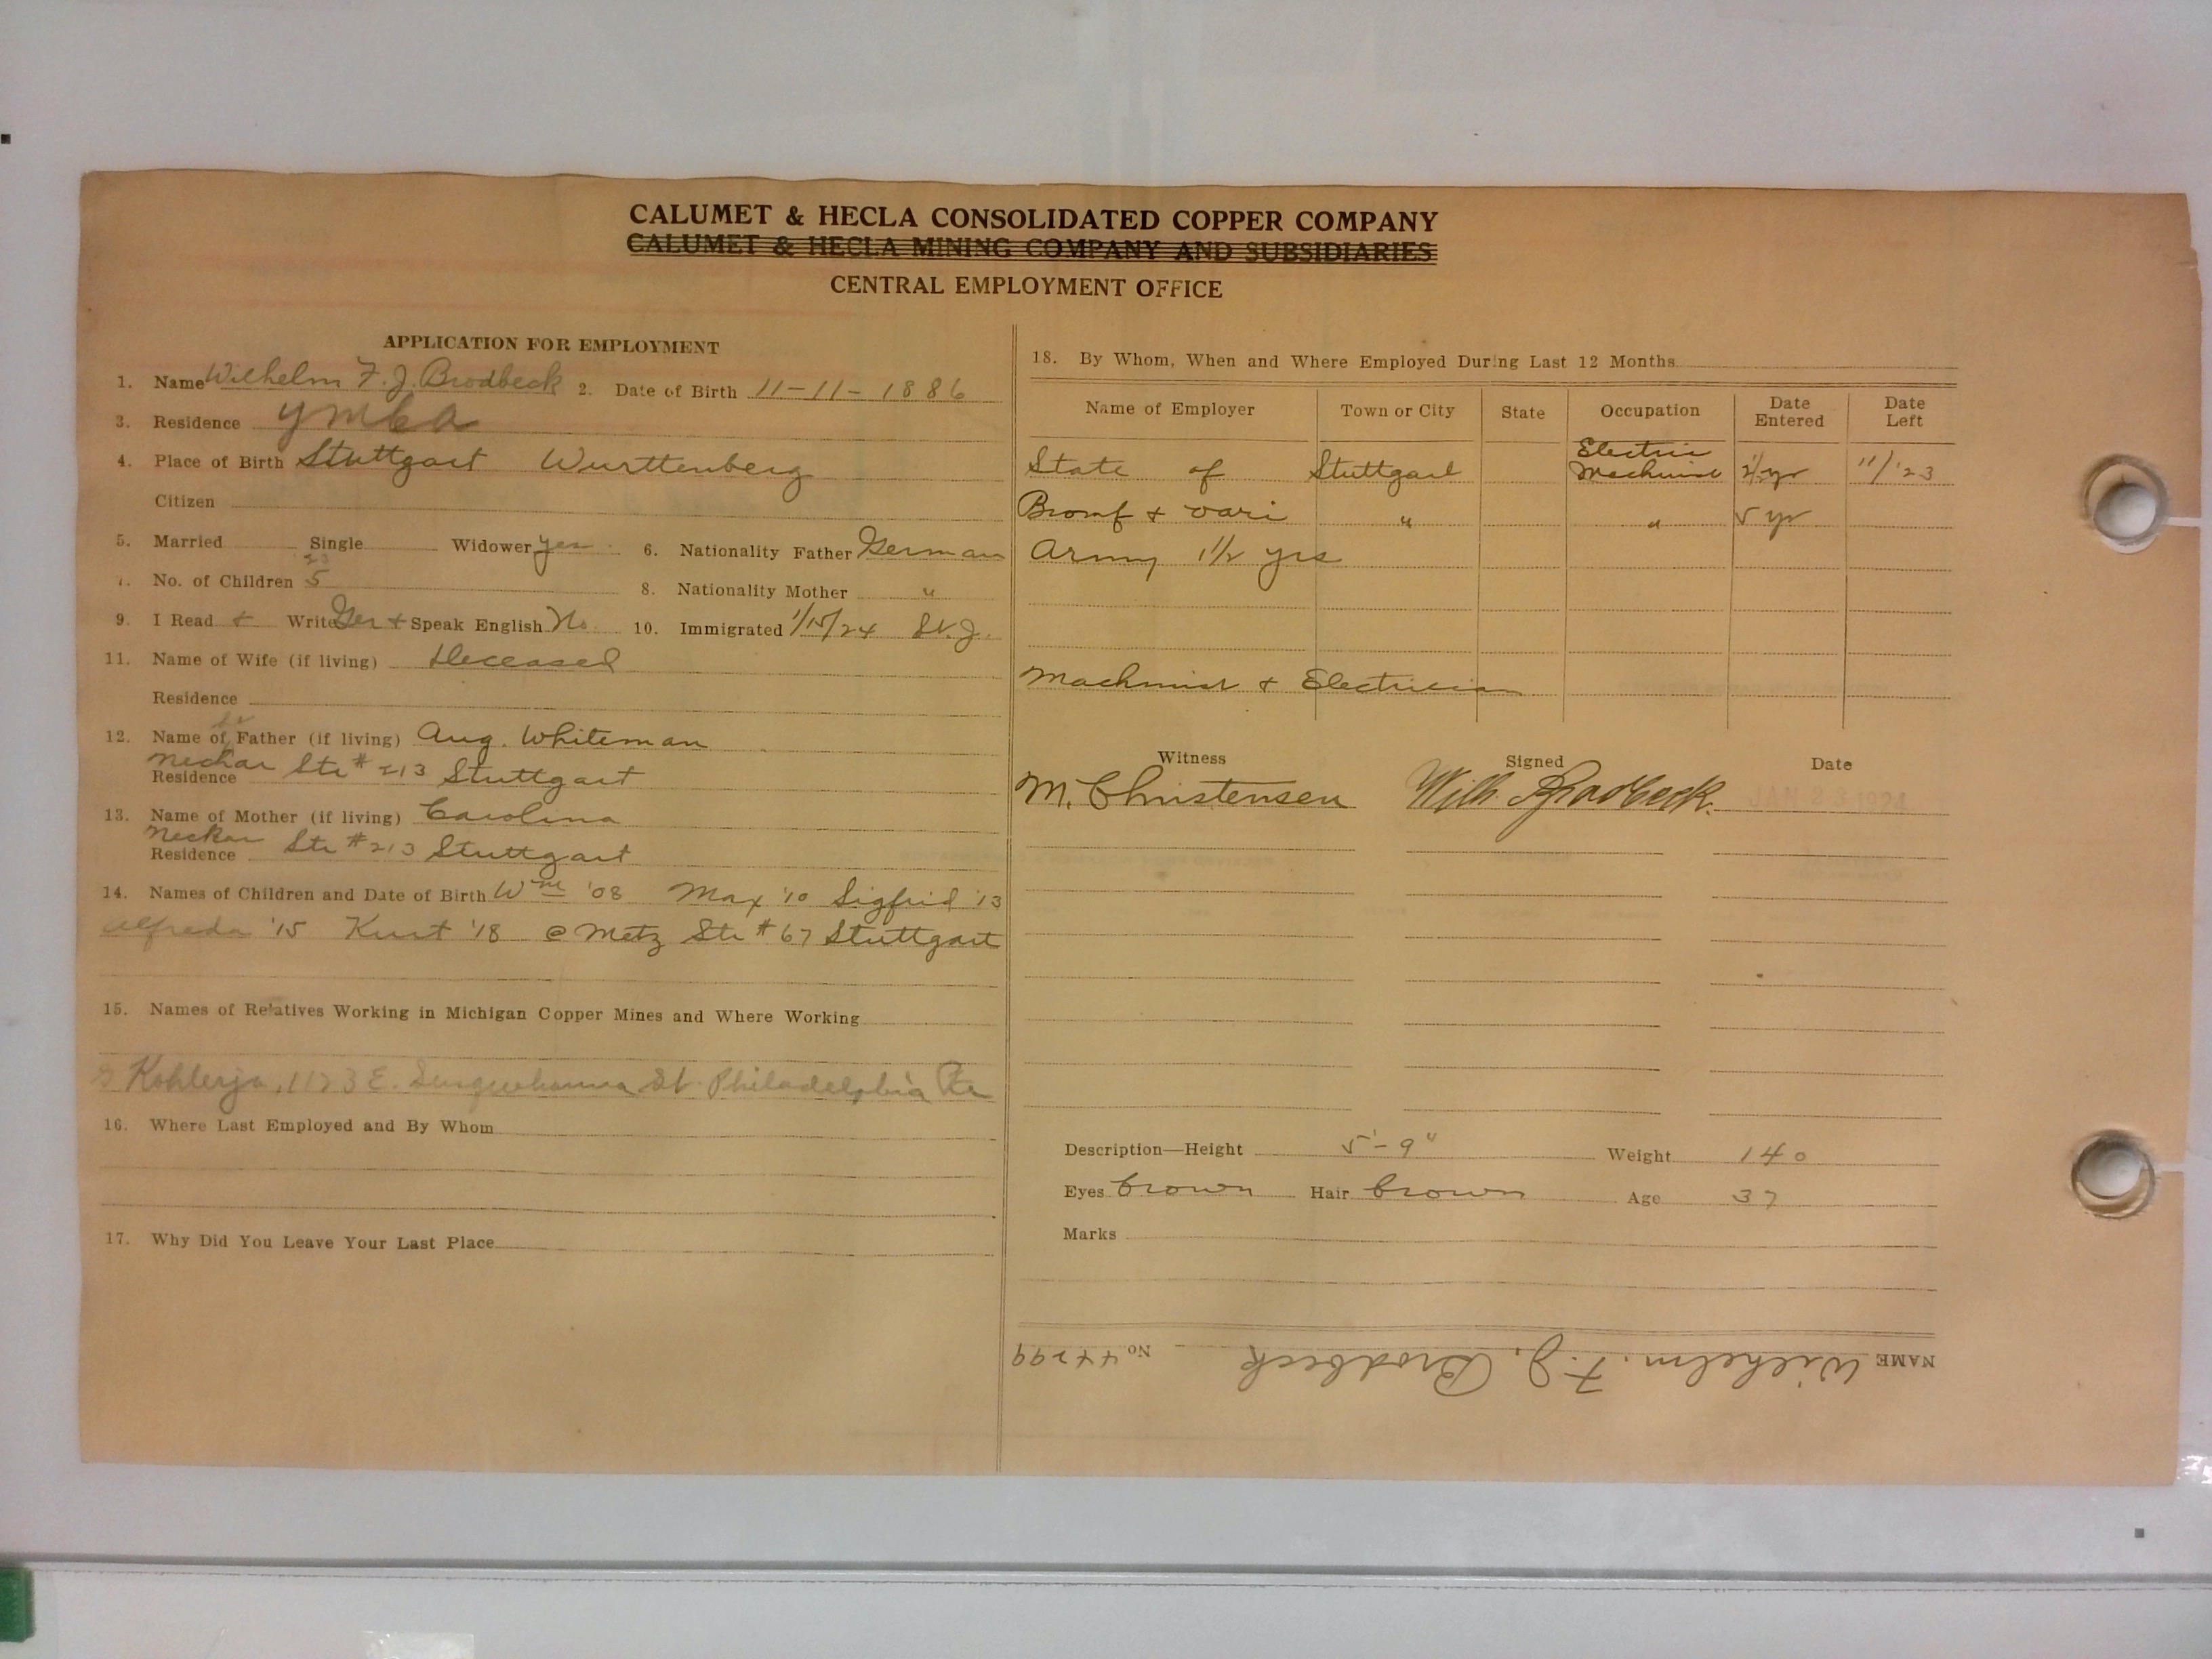 CALUMET & HECLA CONSOLIDATED COPPER COMPANY
CALUMET & HECLA MINING COMPANY AND SUBSIDIARIES
CENTRAL EMPLOYMENT OFFICE
APPLICATION FOR EMPLOYMENT
1. Name Wilhelm F. J. Brodbeck 2. Date of Birth 11-11-1886
3. Residence YMCA
4. Place of Birth Stuttgart Wurttenberg
Citizen
5. Married Single Widower yes. 6. Nationality Father German
7. No. of Children 5
8. Nationality Mother "
9. I Read + Write Ger + Speak English No. 10. Immigrated 1/15/24
11. Name of Wife (if living) Deceased
Residence
12. Name of Father (if living) Aug. Whiteman
Residence Neckar Str #213 Stuttgart
13. Name of Mother (if living) Carolina
Residence Neckar Str #213 Stuttgart
14. Names of Children and Date of Birth Wm '08 Max '10 Sigfrid '13
Alfreda '15 Kurt '18 @ Metz Str #67 Stuttgart
15. Names of Relatives Working in Michigan Copper Mines and Where Working
E. Susquehanna St. Philadelphia Pa
16. Where Last Employed and By Whom
17. Why Did You Leave Your Last Place
18. By Whom, When and Where Employed During Last 12 Months
Name of Employer Town or City State Occupation Date Entered Date Left
State of Stuttgart Electric Machinist 11/'23
" " 5 yr
Army 1 1/2 yrs
Machinist + Electrician
Witness Signed Date
M. Christensen Wilh. Brodbeck. JAN 23 1924
Description—Height 5'-9" Weight 140
Eyes brown Hair brown Age 37
Marks
NAME Wilhelm. F. J. Brodbeck No. 44299